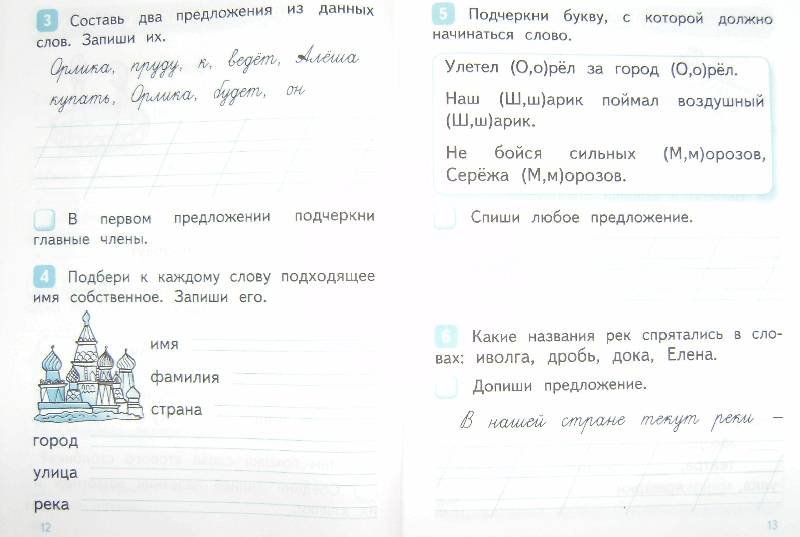 3 Составь два предложения из данных
слов. Запиши их.
Орлика, пруду, к, ведёт, Алёша
купать, Орлика, будет, он
В первом предложении подчеркни
главные члены.
4 Подбери к каждому слову подходящее
имя собственное. Запиши его.
имя
фамилия
страна
город
улица
река
12
5 Подчеркни букву, с которой должно
начинаться слово.
Улетел (О,о)рёл за город (О,о)рёл.
Наш (Ш,ш)арик поймал воздушный
(Ш,ш)арик.
Не бойся сильных (М,м)орозов,
Серёжа (М,м)орозов.
Спиши любое предложение.
6 Какие названия рек спрятались в сло-
вах: иволга, дробь, дока, Елена.
Допиши предложение.
В нашей стране текут реки –
13